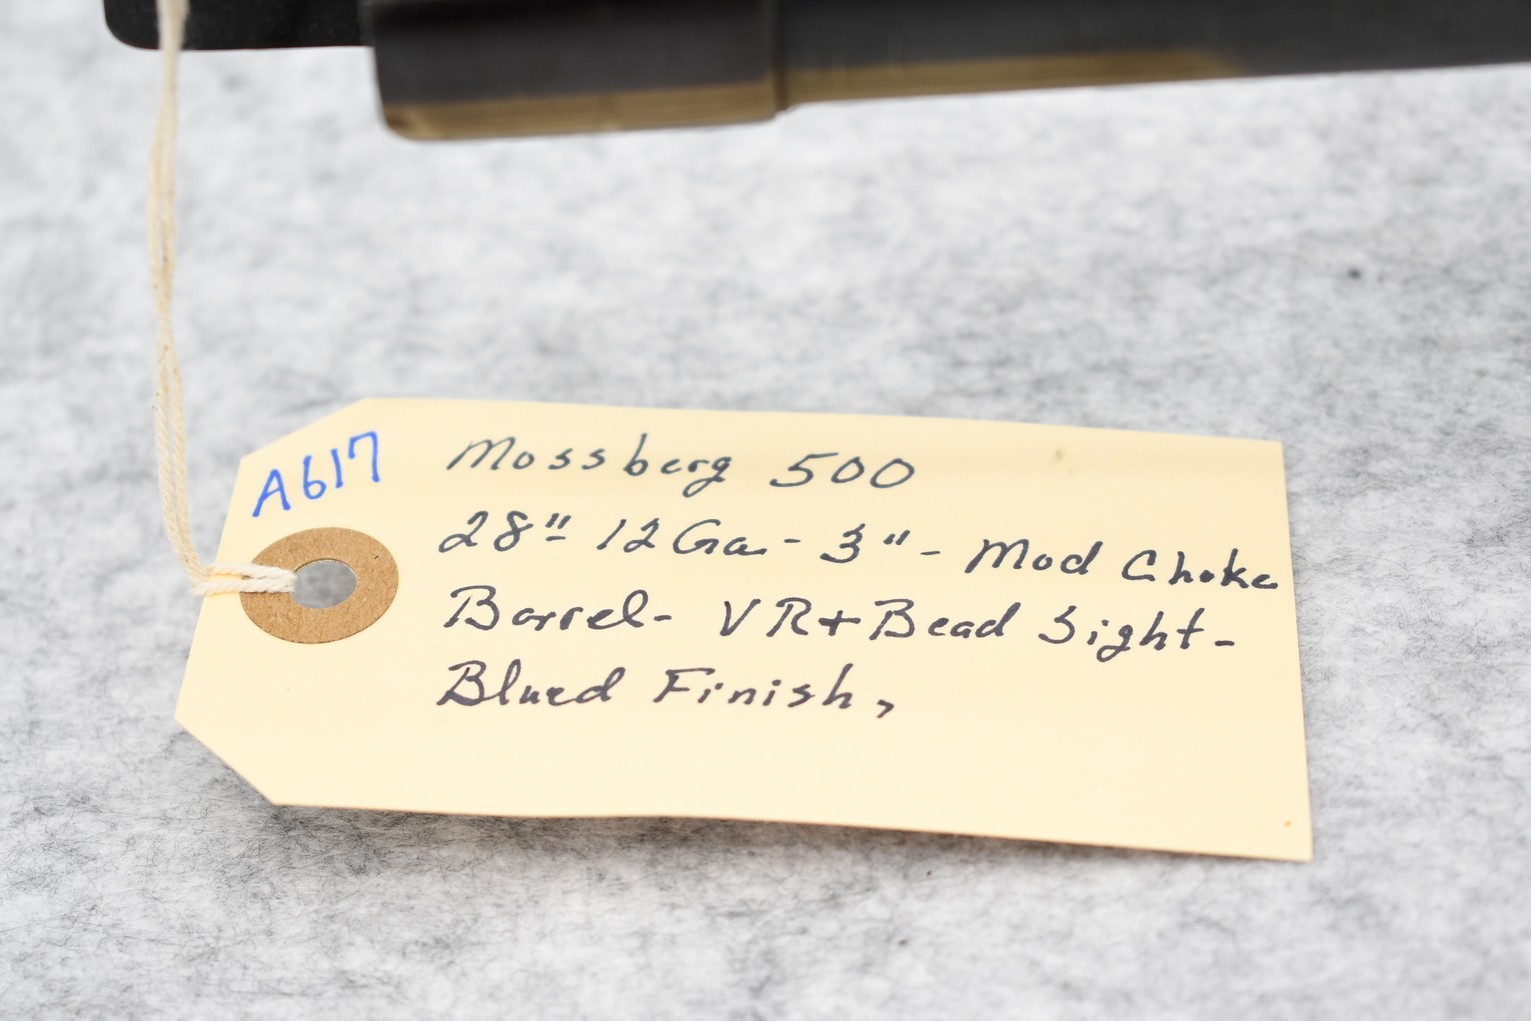 A617
Mossberg 500
28" 12 Ga - 3" - Mod Choke
Barrel - VR + Bead Sight -
Blued Finish,